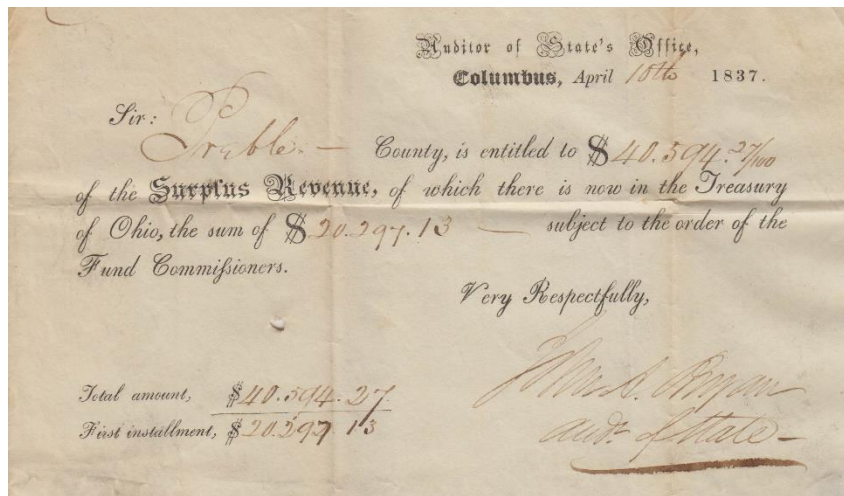 Auditor of State's Office,
Columbus, April 10th 1837.
Sir:
Preble. — County, is entitled to $40.594.27/100
of the Surplus Revenue, of which there is now in the Treasury
of Ohio, the sum of $20.297.13 — subject to the order of the
Fund Commiſsioners.
Very Respectfully,
John A. Bryan
Audr. of State —
Total amount, $40.594.27.
First installment, $20.297.13